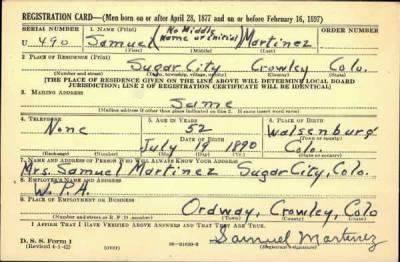 REGISTRATION CARD—(Men born on or after April 28, 1877 and on or before February 16, 1897)
SERIAL NUMBER 1. NAME (Print) ORDER NUMBER
U 490 Samuel (No Middle name or Initial) Martinez
(First) (Middle) (Last)
2. PLACE OF RESIDENCE (Print)
Sugar City Crowley Colo.
(Number and street) (Town, township, village, or city) (County) (State)
[THE PLACE OF RESIDENCE GIVEN ON THE LINE ABOVE WILL DETERMINE LOCAL BOARD
JURISDICTION; LINE 2 OF REGISTRATION CERTIFICATE WILL BE IDENTICAL]
3. MAILING ADDRESS
Same
[Mailing address if other than place indicated on line 2. If same insert word same]
4. TELEPHONE 5. AGE IN YEARS 6. PLACE OF BIRTH
None 52 Walsenburg
DATE OF BIRTH (Town or county)
July 19 1890 Colo.
(Exchange) (Number) (Mo.) (Day) (Yr.) (State or country)
7. NAME AND ADDRESS OF PERSON WHO WILL ALWAYS KNOW YOUR ADDRESS
Mrs. Samuel Martinez Sugar City, Colo.
8. EMPLOYER'S NAME AND ADDRESS
W. P. A.
9. PLACE OF EMPLOYMENT OR BUSINESS
Ordway, Crowley, Colo
(Number and street or R. F. D. number) (Town) (County) (State)
I AFFIRM THAT I HAVE VERIFIED ABOVE ANSWERS AND THAT THEY ARE TRUE.
D. S. S. Form 1 Samuel Martinez
(Revised 4-1-42) (over) (Registrant's signature)